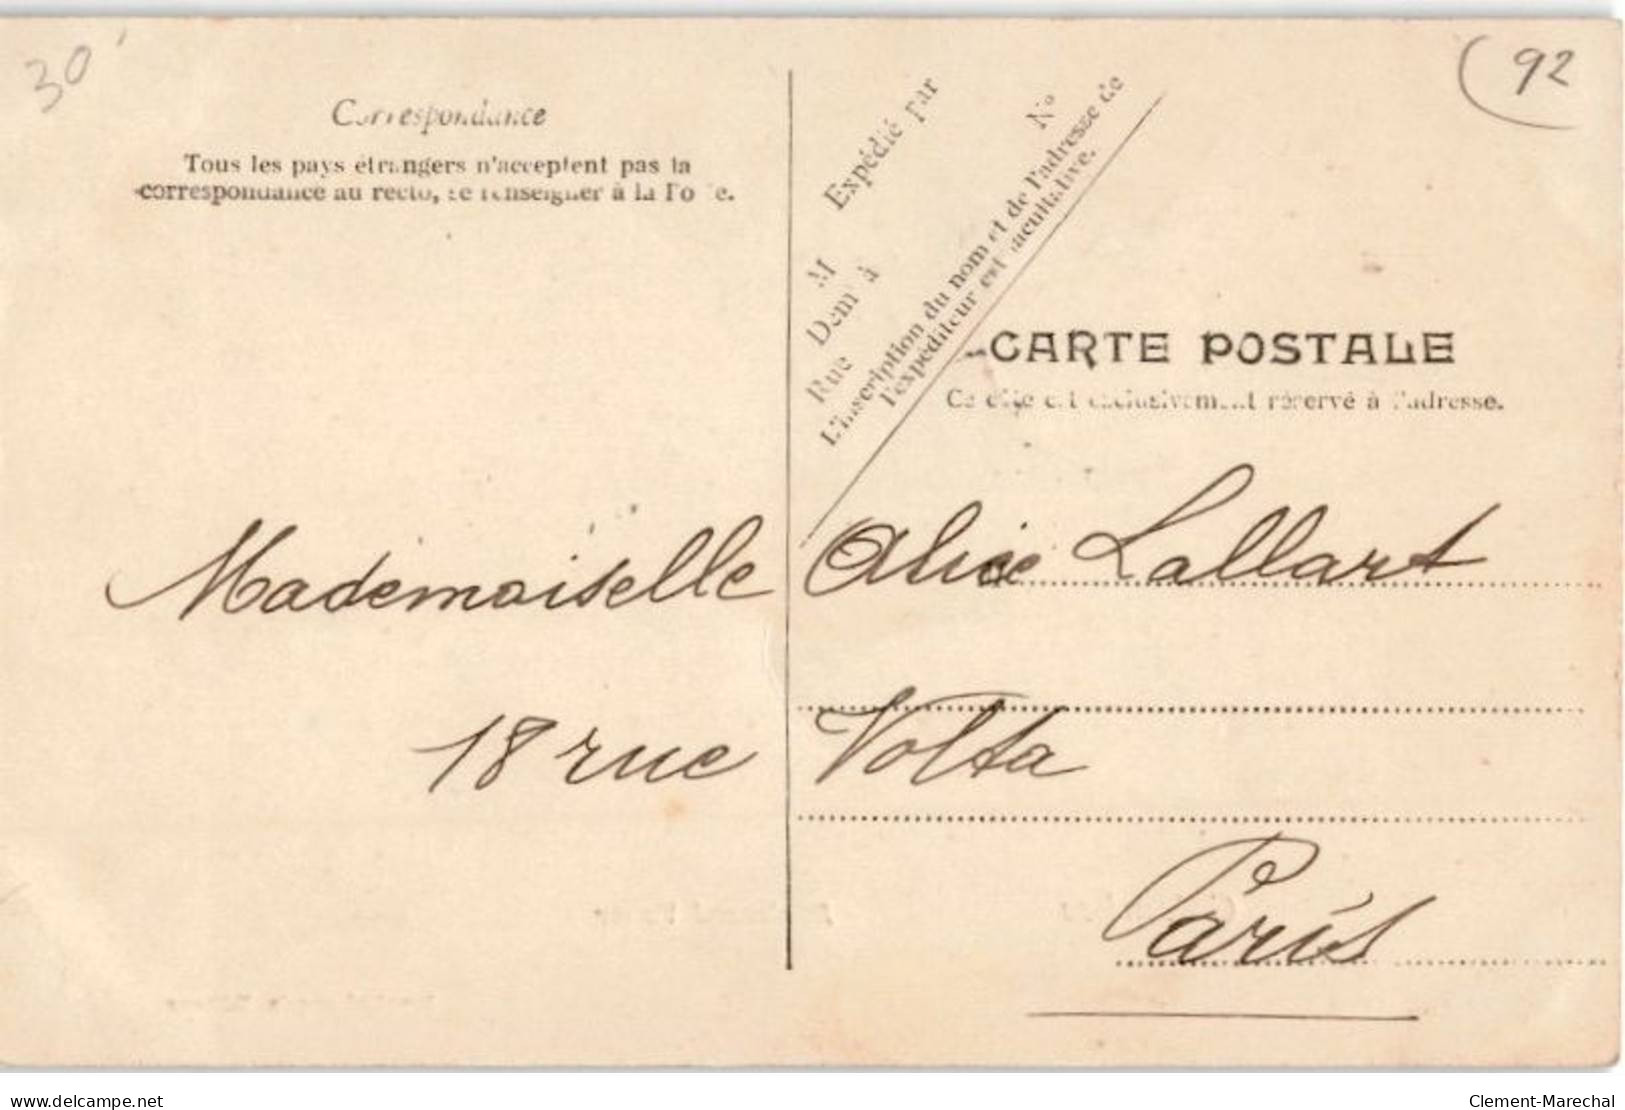 30
92
Correspondance
Tous les pays étrangers n'acceptent pas la
correspondance au recto, se renseigner à la Poste.
Expédié par
M
N°
Dem^t à
Rue
L'inscription du nom et de l'adresse de
l'expéditeur est facultative.
CARTE POSTALE
Ce côté est exclusivement réservé à l'adresse.
Mademoiselle Alice Lallart
18 rue Volta
Paris
delcampe.net
Clement-Marechal